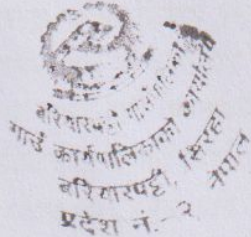 बरियारपट्टी गाउँपालिका
गाउँ कार्यपालिकाको कार्यालय
बरियारपट्टी, सिरहा
नेपाल
प्रदेश नं. - २